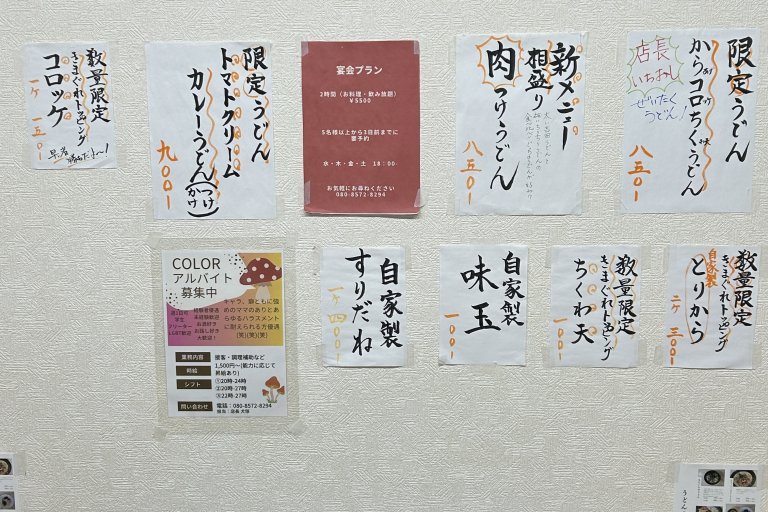 数量限定
きまぐれトッピング
コロッケ
一ケ 一五〇
早い者勝ちだよ〜!
限定うどん
トマトクリーム
カレーうどん(つけ かけ)
九〇〇
宴会プラン
2時間(お料理・飲み放題)
¥5500
5名様以上から3日前までに
要予約
水・木・金・土 18:00-
お気軽にお尋ねください
080-8572-8294
新メニュー
相盛り
肉つけうどん
八五〇
限定うどん
からコロちくうどん
店長
いちおし
ぜいたく
うどん!
八五〇
COLOR
アルバイト
募集中
キャラ、癖ともに強
めのママのありとあ
らゆるハラスメント
に耐えられる方優遇
(笑)(笑)(笑)
週1日可
学生
フリーター
LGBT歓迎
経験者優遇
未経験歓迎
お酒好き
お話し好き
大歓迎!
業務内容 接客・調理補助など
時給 1,500円~(能力に応じて
昇給あり)
シフト ①20時-24時
②20時-27時
③22時-27時
問い合わせ 電話:080-8572-8294
担当:店長 犬塚
自家製
すりだね
一ケ 四〇〇
自家製
味玉
一〇〇
数量限定
きまぐれトッピング
ちくわ天
一〇〇
数量限定
きまぐれトッピング
自家製
とりから
二ケ 三〇〇
うどん